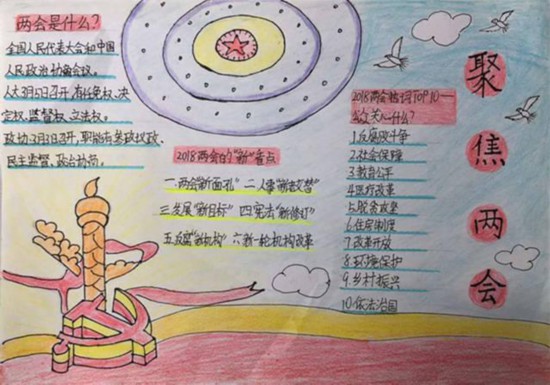 两会是什么?
全国人民代表大会和中国
人民政治协商会议。
人大3月5日召开,有任免权、决
定权、监督权、立法权。
政协3月3日召开,职能有参政议政、
民主监督、政治协商。
2018两会的"新"看点
一.两会"新面孔" 二.人事"新老交替"
三.发展"新目标" 四.宪法"新修订"
五.反腐"新机构" 六.新一轮机构改革
2018两会热词TOP10——
公众关心什么?
1.反腐败斗争
2.社会保障
3.教育公平
4.医疗改革
5.脱贫攻坚
6.住房制度
7.改革开放
8.环境保护
9.乡村振兴
10.依法治国
聚焦两会